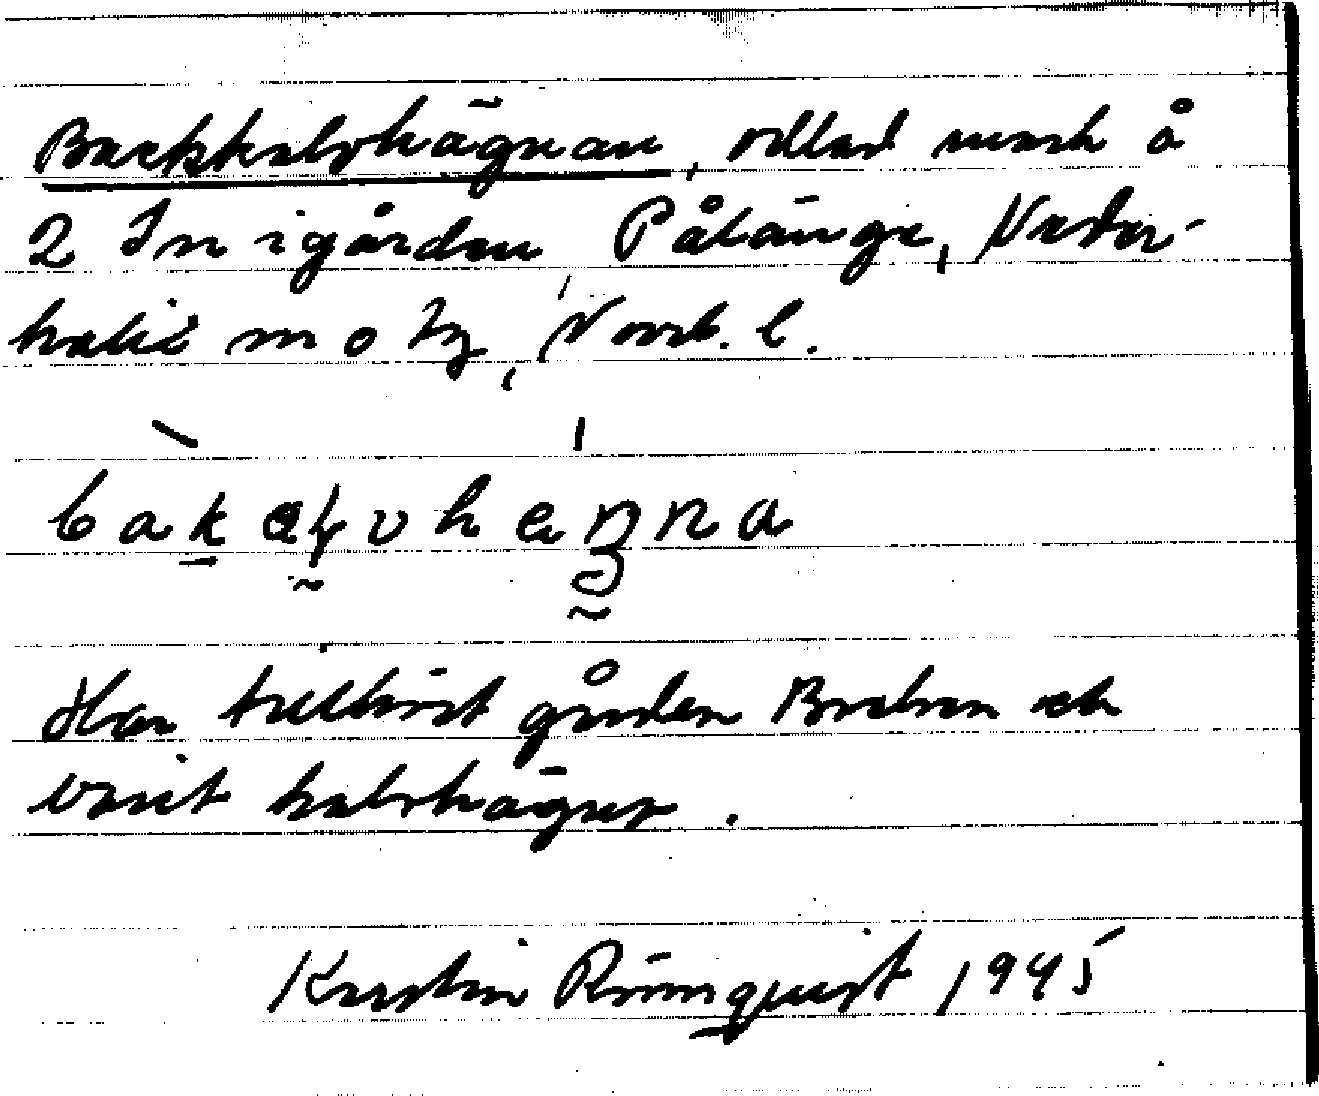 Backkalvhägnan, odlad mark å
2 In i gården, Pålänge, Neder-
kalix m o tg, Norrb. l.
bakalvhæŋna
Har tillhört gården Backen och
varit kalvhägn.
Kerstin Rönnquist 1945